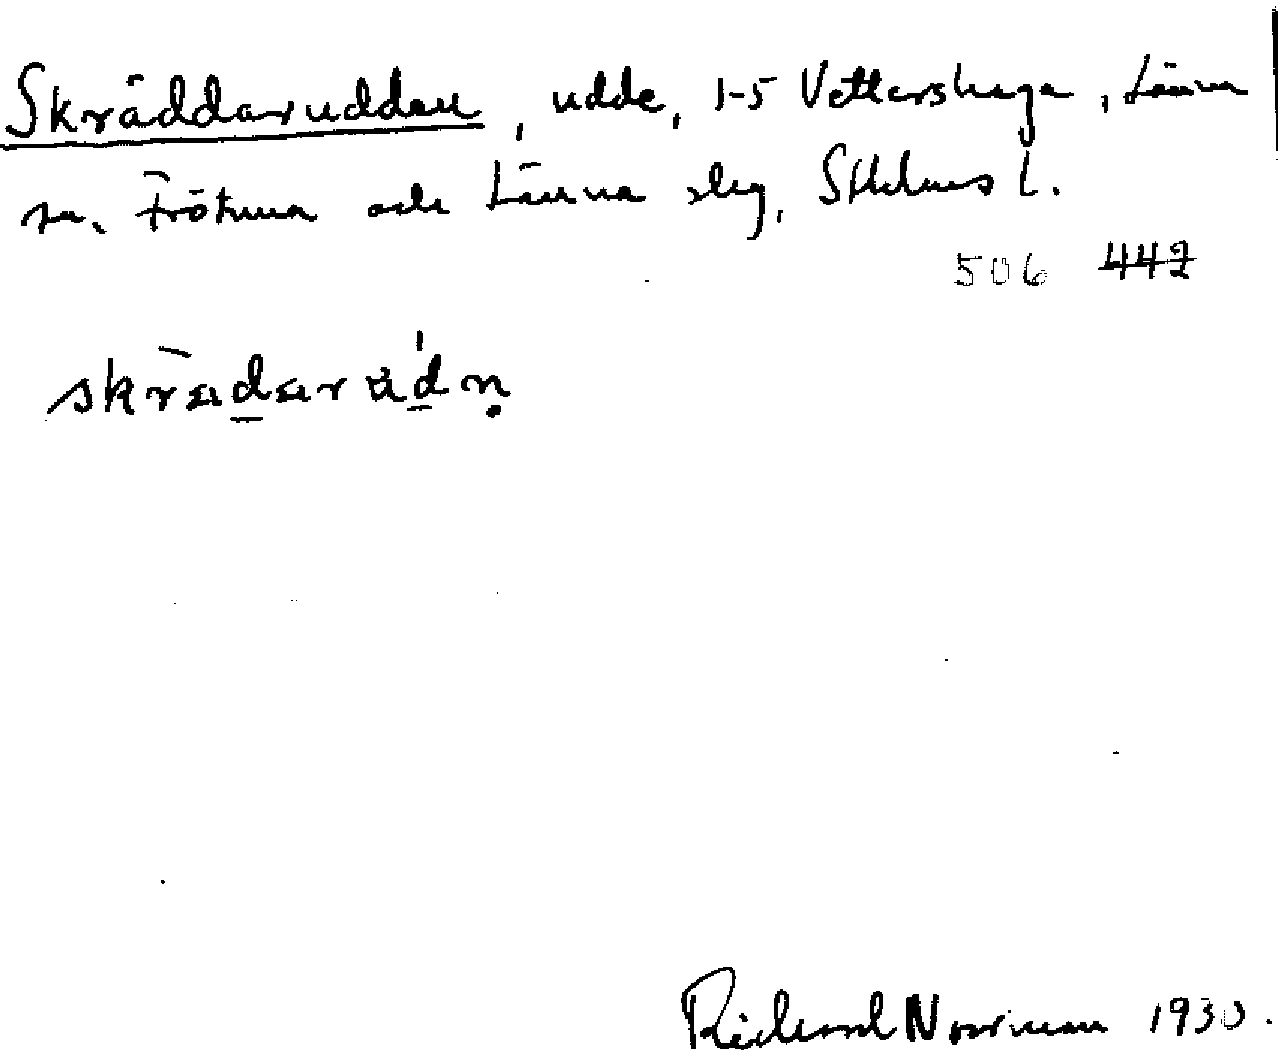 Skräddarudden, udde, 1-5 Vettershaga, Länna
sn. Frötuna och Länna slg, Sthlms l.
506 442
Rickard Norrman 1930.